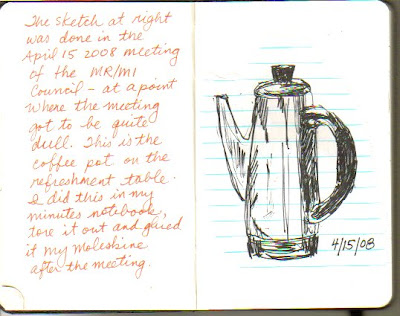 The sketch at right
was done in the
April 15 2008 meeting
of the MR/MI
Council - at a point
where the meeting
got to be quite
dull. This is the
coffee pot on the
refreshment table.
I did this in my
minutes notebook,
tore it out and glued
it my moleskine
after the meeting.
4/15/08